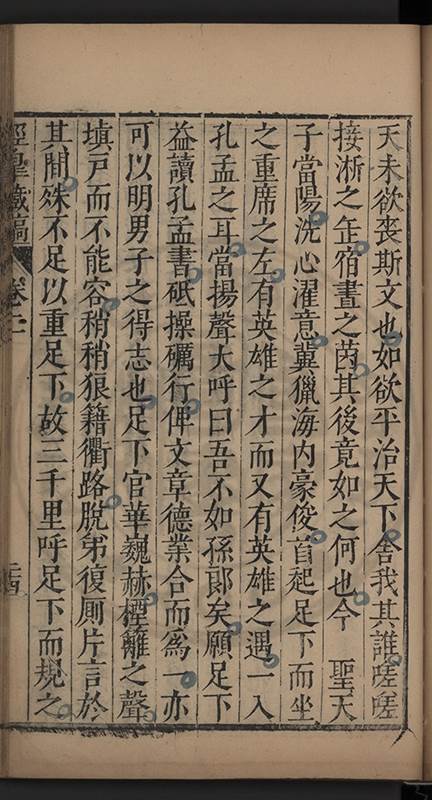 天未欲喪斯文也如欲平治天下舍我其誰嗟嗟
接淅之缶宿晝之茵其後竟如之何也今　聖天
子當陽洗心濯意冀獵海內豪俊首起足下而坐
之重席之左有英雄之才而又有英雄之遇一入
孔孟之耳當揚聲大呼曰吾不如孫郎矣願足下
益讀孔孟書砥操礪行俾文章德業合而爲一亦
可以明男子之得志也足下官華巍赫櫻籬之聲
塡戸而不能容稍稍狠籍衢路脫弟復厠片言於
其閒殊不足以重足下故三千里呼足下而規之
經臯藏稿　卷二